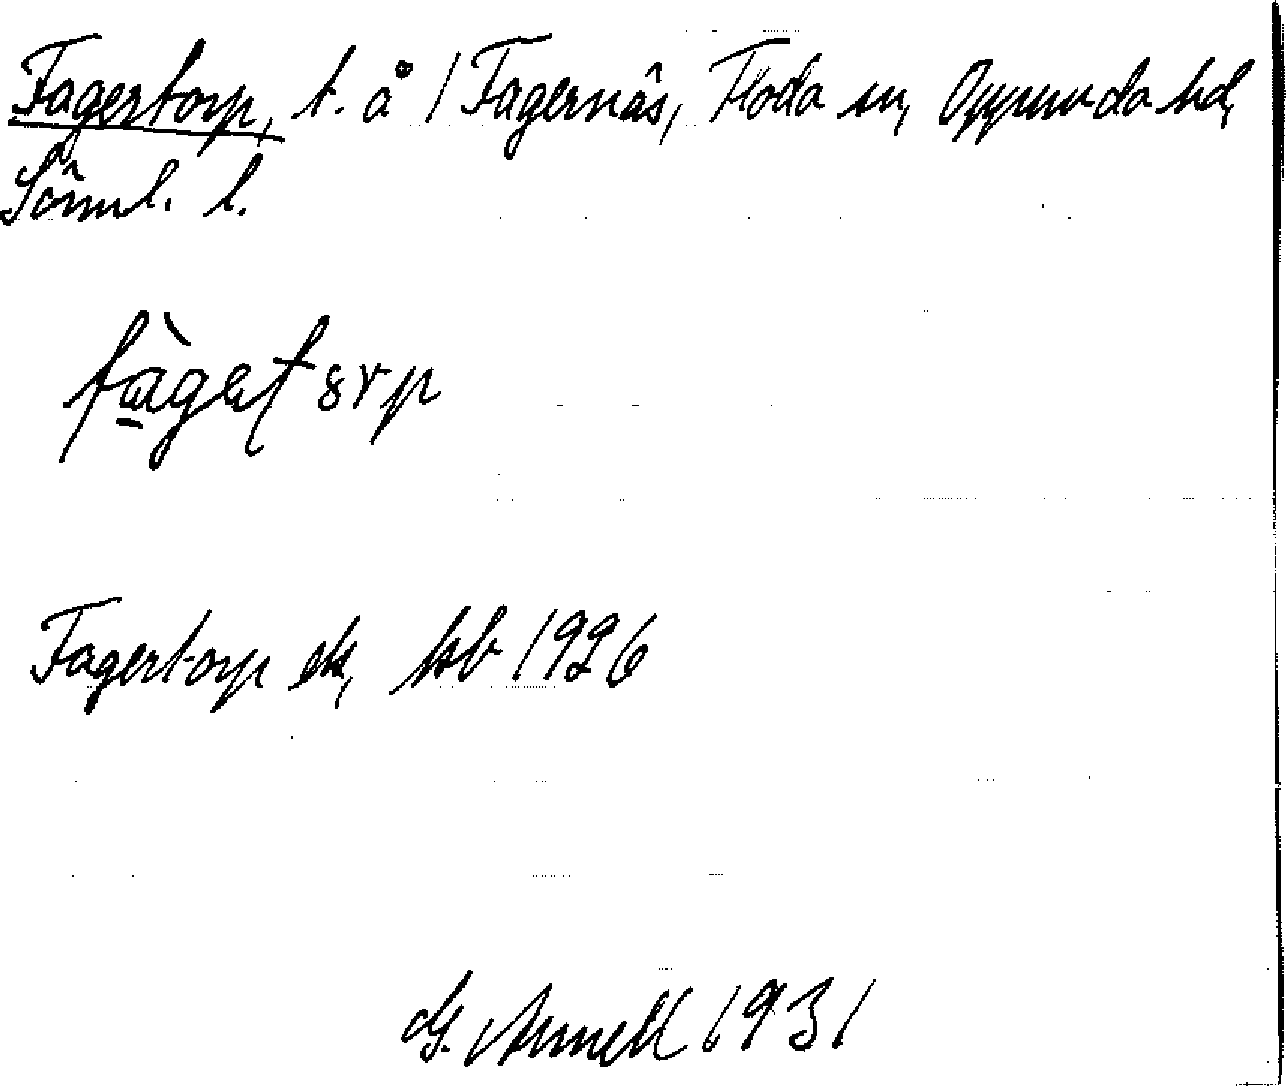 Fagertorp, t. å 1 Fagernäs, Floda sn, Oppunda hd,
Söml. l.
Fagertorp ek, kb 1926
G. Annell 1931